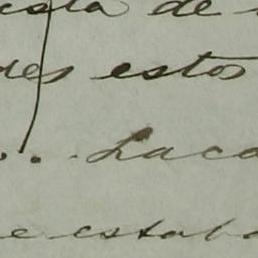 esta de
des estos
Laca
e estaba